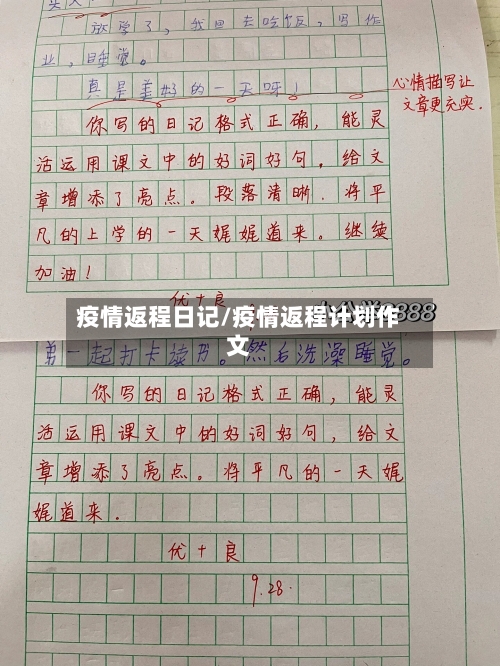 放学了，我回去吃饭，写作
业，睡觉。
真是美好的一天呀！
心情描写让
文章更充实。
你写的日记格式正确，能灵
活运用课文中的好词好句。给文
章增添了亮点。段落清晰，将平
凡的上学的一天娓娓道来。继续
加油！
优+良
888
疫情返程日记/疫情返程计划作
文
弟一起打卡读书。然后洗澡睡觉。
你写的日记格式正确，能灵
活运用课文中的好词好句，给文
章增添了亮点。将平凡的一天娓
娓道来．
优+良
9.28.